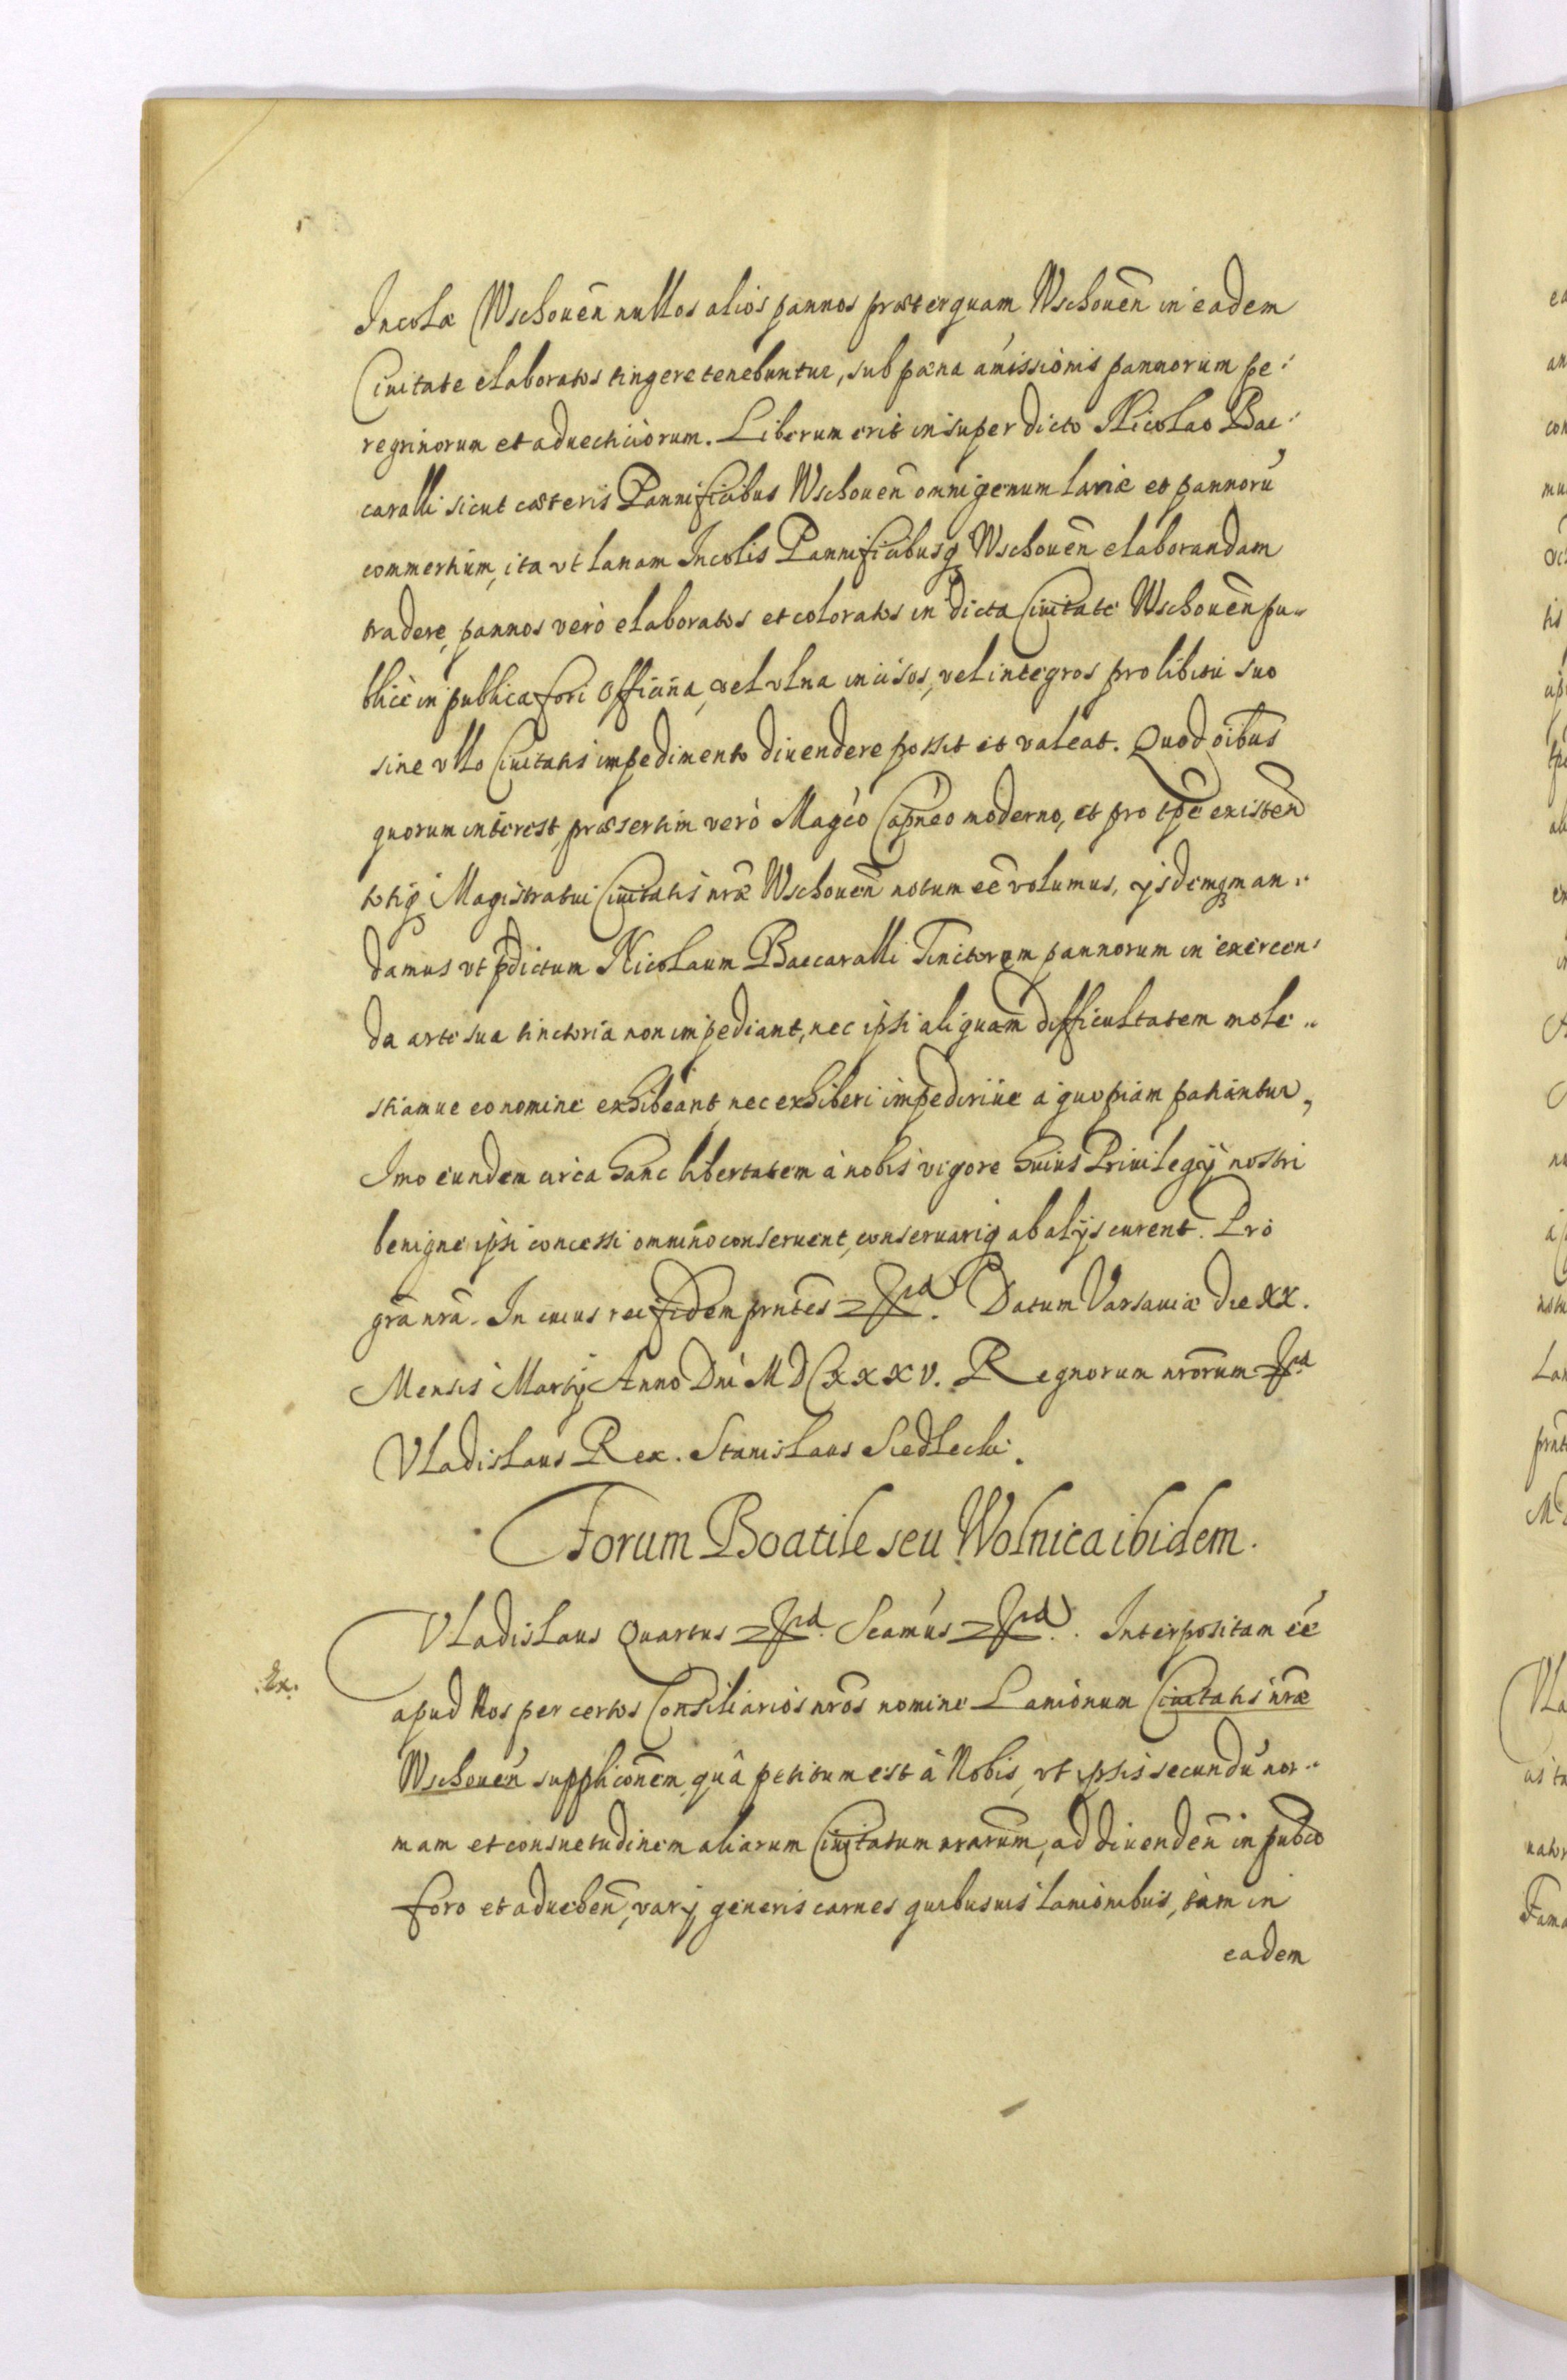 Incolæ Wschouen̄ nullos alios pannos præterquam Wschouen̄ in eadem
Ciuitate elaboratos tingere tenebuntur, sub pœna amissionis pannorum pe:
regrinorum et aduectitiorum. Liberum erit insuper dicto Nicolao Bac:
caralli sicut cæteris Pannificibus Wschouen̄ omnigenum lanæ et pannorū
commertium, ita vt lanam Incolis Pannificibusq Wschouen̄ elaborandam
tradere, pannos verò elaboratos et coloratos in dicta Ciuitate Wschouen̄ pu„
blicè in publica fori Officina, vel vlna incisos, vel integros pro libitu suo
sine vllo Ciuitatis impedimento diuendere possit et valeat. Quod oībus
quorum interest, præsertim verò Magco Capneo moderno, et pro tp̄e existen̄
totiq Magistratui Ciuitatis nr̄æ Wschouen̄ notum eē volumus, ysdemq man„
damus vt pdictum Nicolaum Baccaralli Tinctorem pannorum in exercen:
da arte sua tinctoria non impediant, nec ipsi aliquam difficultatem mole„
stiamue eo nomine exhibeant nec exhiberi impediriue a quopiam patiantur,
Imo eundem circa hanc libertatem à nobis vigore huius Priuilegÿ nostri
benigne ipsi concessi omnino conseruent, conseruariq ab alÿs curent. Pro
grā nrā. In cuius rei fidem pn̄tes &ra. Datum Varsauiæ die XX.
Mensis Martÿ Anno Dni MDCXXXV. Regnorum nrōrum &ra
Vladislaus Rex. Stanislaus Siedlecki.
Forum Boatile seu Wolnica ibidem.
Vladislaus Quartus &ra. Scamus &ra. Interpositam eē
Ex.
apud Nos per certos Consiliarios nrōs nomine Lanionum Ciuitatis nrǣ
Wschouen̄ supplicōnem, quâ petitum est à Nobis, vt ipsis secundū nor„
mam et consuetudinem aliarum Ciuitatum nrārum, ad diuenden̄ in publco
foro et adueben̄, varÿ generis carnes quibusuis lanionibus, tam in
eadem